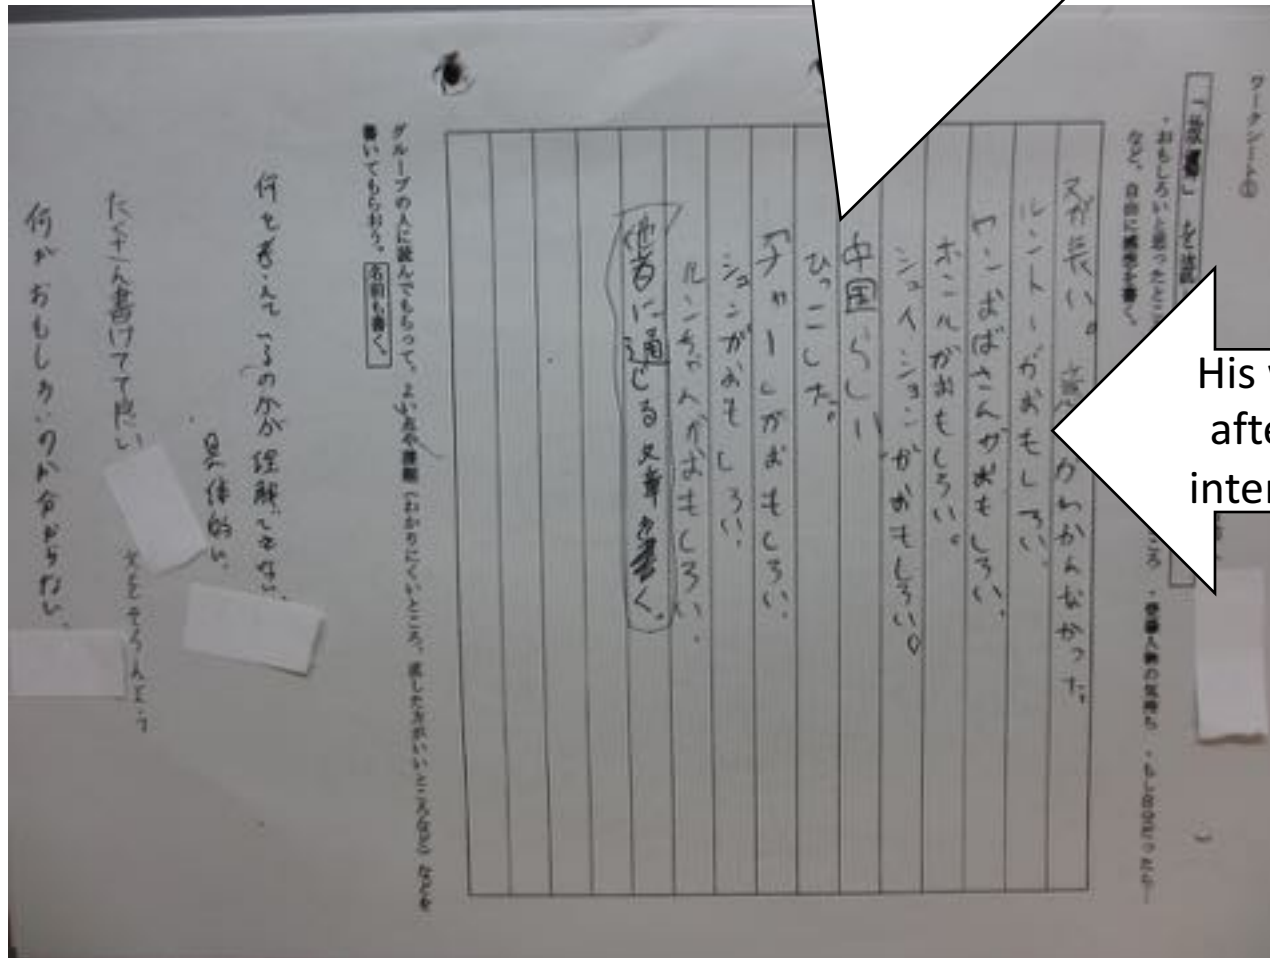 ワークシート①
「故郷」を読
・おもしろいと思ったとこ
ころ ・登場人物の気持ち ・もし自分だったら…
など、自由に感想を書く。
文が長い。
わかんなかった。
ルントーがおもしろい。
ヤンおばさんがおもしろい。
ホンルがおもしろい。
シュイションがおもしろい。
中国らしい
ひっこした。
「チャー」がおもしろい。
シュンがおもしろい。
ルンちゃんがおもしろい。
他者に通じる文章を書く。
グループの人に読んでもらって、よい点や課題(わかりにくいところ、直した方がいいところなど)などを
書いてもらおう。名前も書く。
何を考えて
のかが理解できない。
具体的に
たくさん書けてて良い
何がおもしろいのか分からない。
His
afte
inter